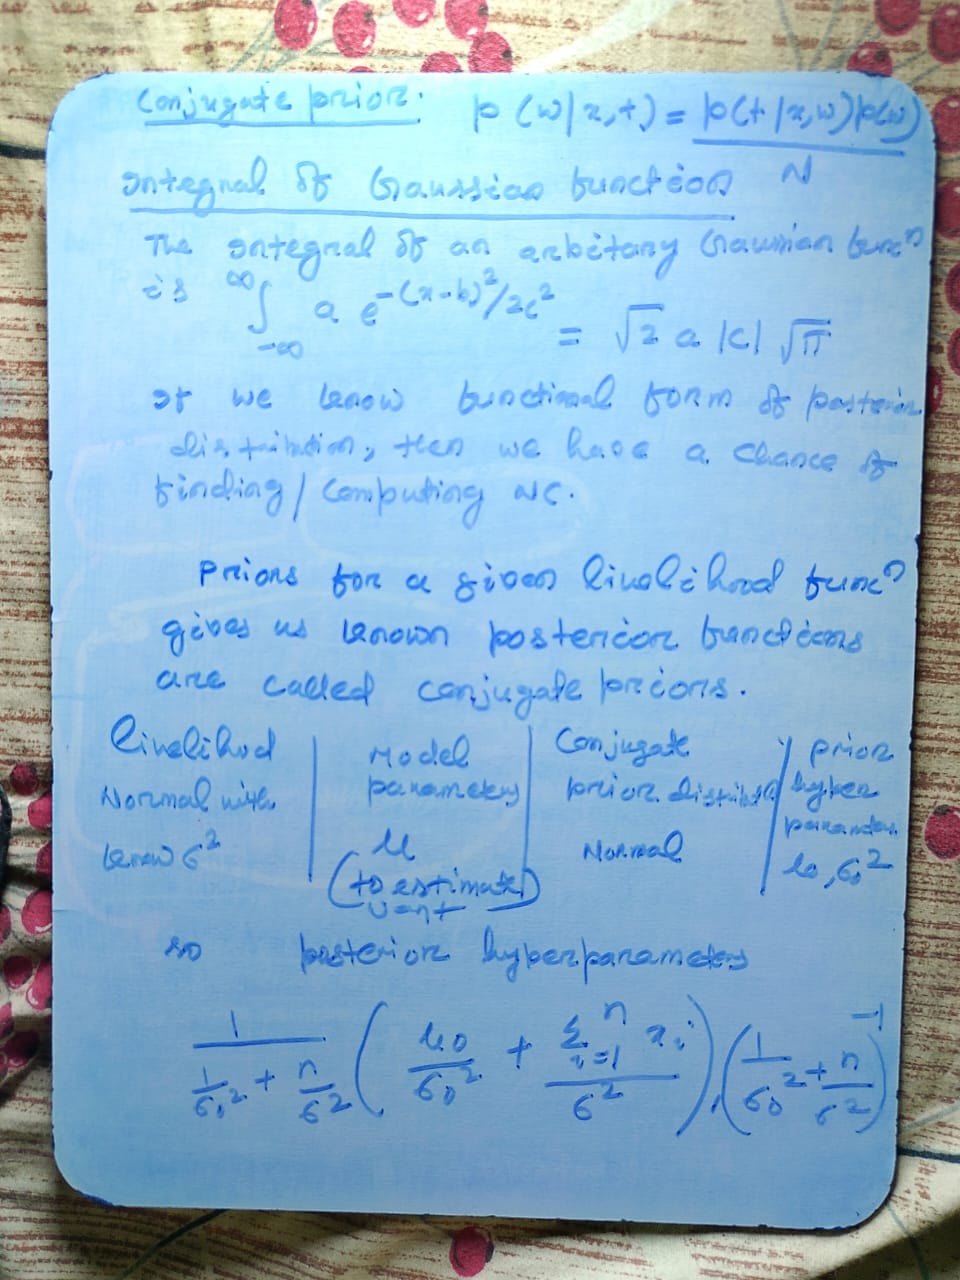 Conjugate prior. p(w|x,t) = p(t|x,w)p(w)
Integral of Gaussian function N
The Integral of an arbitary Gaussian funcⁿ
is ∞∫-∞ a e^-(x-b)²/2c² = √2 a |c| √π
If we know functional form of posterior
distribution, then we have a chance of
finding/computing NC.
Priors for a given likelihood funcⁿ
gives us known posterior functions
are called conjugate priors.
Likelihod | Model | Conjugate | prior
Normal with | parameters | prior distribⁿ | hyper
parameters
know σ² | μ | Normal | μ₀, σ₀²
(to estimate)
so posterior hyperparameters
1/(1/σ₀² + n/σ²) (μ₀/σ₀² + Σⁿᵢ₌₁ xᵢ/σ²), (1/σ₀² + n/σ²)⁻¹